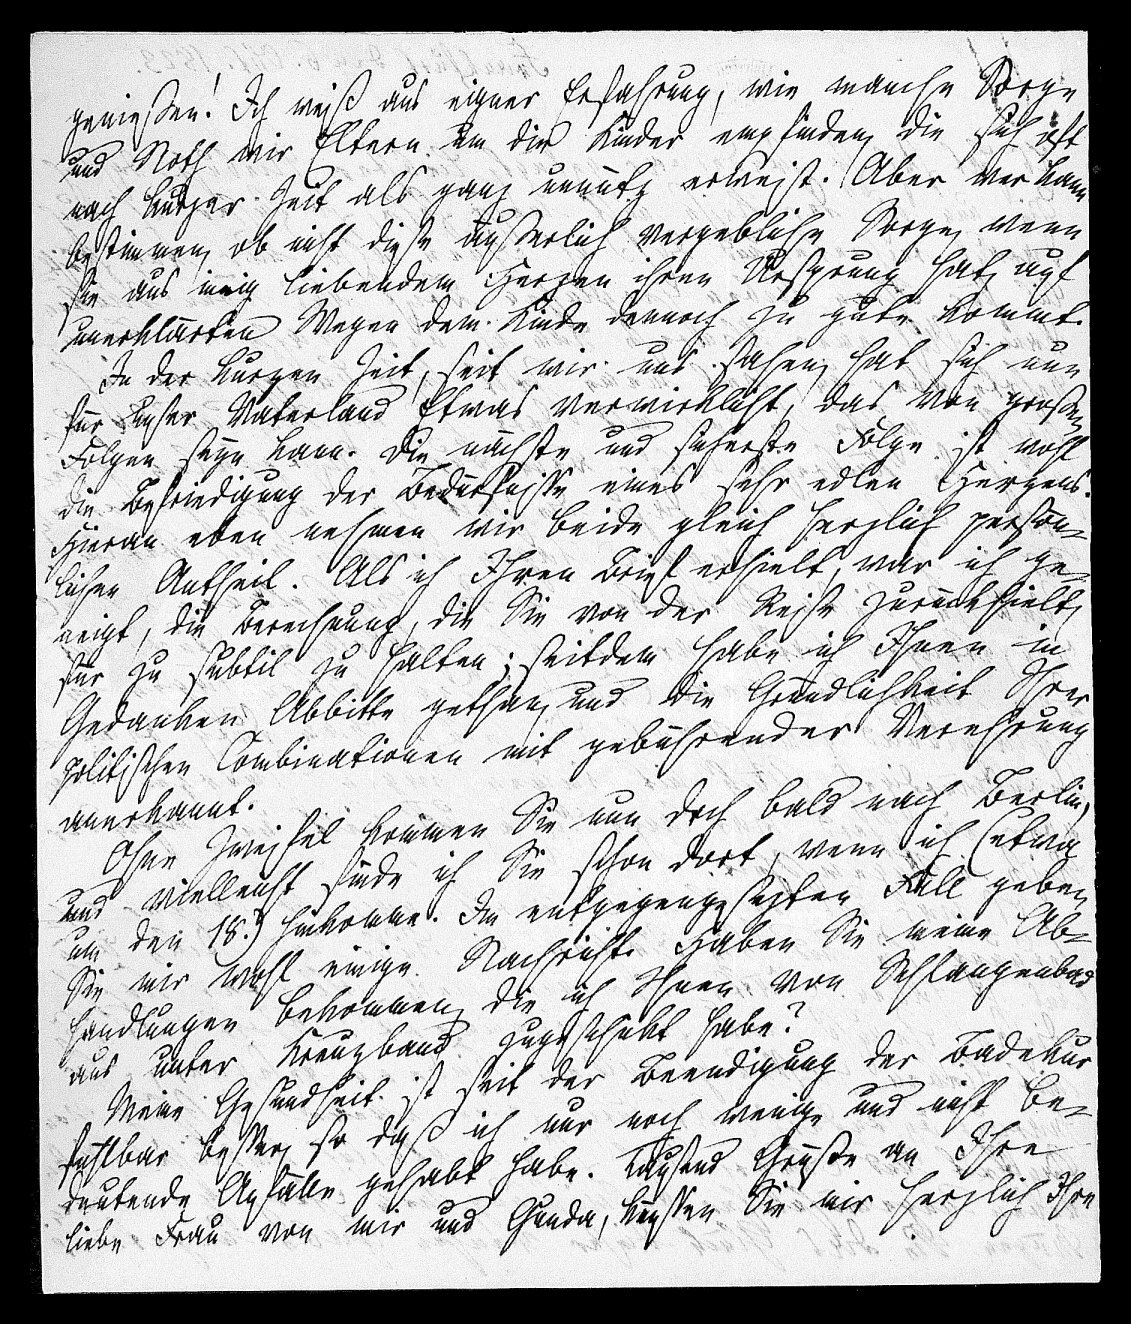 genießen! Ich weiß aus eigner Erfahrung, wie manche Sorge
und Noth wir Eltern um die Kinder empfinden, die sich oft
nach kurzer Zeit als ganz unnütz erweist. Aber wer kann
bestimmen, ob nicht diese äußerlich vergebliche Sorge, wenn
sie aus innig liebendem Herzen ihren Ursprung hat, auf
unerklärten Wegen dem Kinde dennoch zu gute kommt.
In der kurzen Zeit, seit wir uns sahen, hat sich nun
für unser Vaterland Etwas verwirklicht, das von großen
Folgen seyn kann. Die nächste und sicherste Folge ist wohl
die Befriedigung der Bedürfnisse eines sehr edlen Herzens.
Hieran eben nehmen wir beide gleich herzlich persön-
lichen Antheil. Als ich Ihren Brief erhielt, war ich ge-
neigt, die Berechnung, die Sie von der Reise zurückhielt,
für zu subtil zu halten; seitdem habe ich Ihnen in
Gedanken Abbitte gethan, und die Gründlichkeit Ihrer
politischen Combinationen mit gebührender Verehrung
anerkannt.
Ohne Zweifel kommen Sie nun doch bald nach Berlin,
und vielleicht finde ich Sie schon dort, wenn ich (etwa
um den 18.) hinkomme. Im entgegengesetzten Fall geben
Sie mir wohl einige Nachricht. Haben Sie meine Ab-
handlungen bekommen, die ich Ihnen von Schlangenbad
aus unter Kreuzband zugeschickt habe?
Meine Gesundheit ist seit der Beendigung der Badekur
fühlbar besser, so daß ich nur noch wenige und nicht be-
deutende Anfälle gehabt habe. Tausend Grüße an Ihre
liebe Frau von mir und Gunda, küssen Sie mir herzlich Ihre